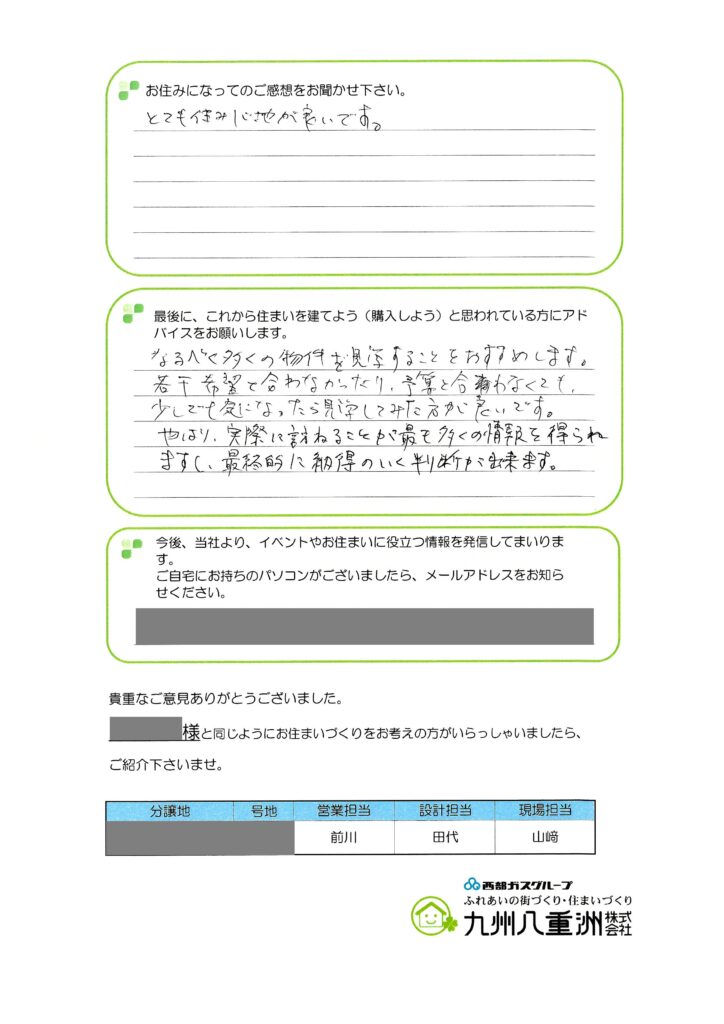 お住みになってのご感想をお聞かせ下さい。
とても住み心地が良いです。
最後に、これから住まいを建てよう（購入しよう）と思われている方にアド
バイスをお願いします。
なるべく多くの物件を見学することをおすすめします。
若干希望と合わなかったり、予算と合わなくても、
少しでも気になったら見学してみた方が良いです。
やはり、実際に訪ねることが最も多くの情報を得られ
ますし、最終的に納得のいく判断が出来ます。
今後、当社より、イベントやお住まいに役立つ情報を発信してまいりま
す。
ご自宅にお持ちのパソコンがございましたら、メールアドレスをお知ら
せください。
貴重なご意見ありがとうございました。
様と同じようにお住まいづくりをお考えの方がいらっしゃいましたら、
ご紹介下さいませ。
分譲地 号地 営業担当 設計担当 現場担当
前川 田代 山﨑
西部ガスグループ
ふれあいの街づくり・住まいづくり
九州八重洲株式会社